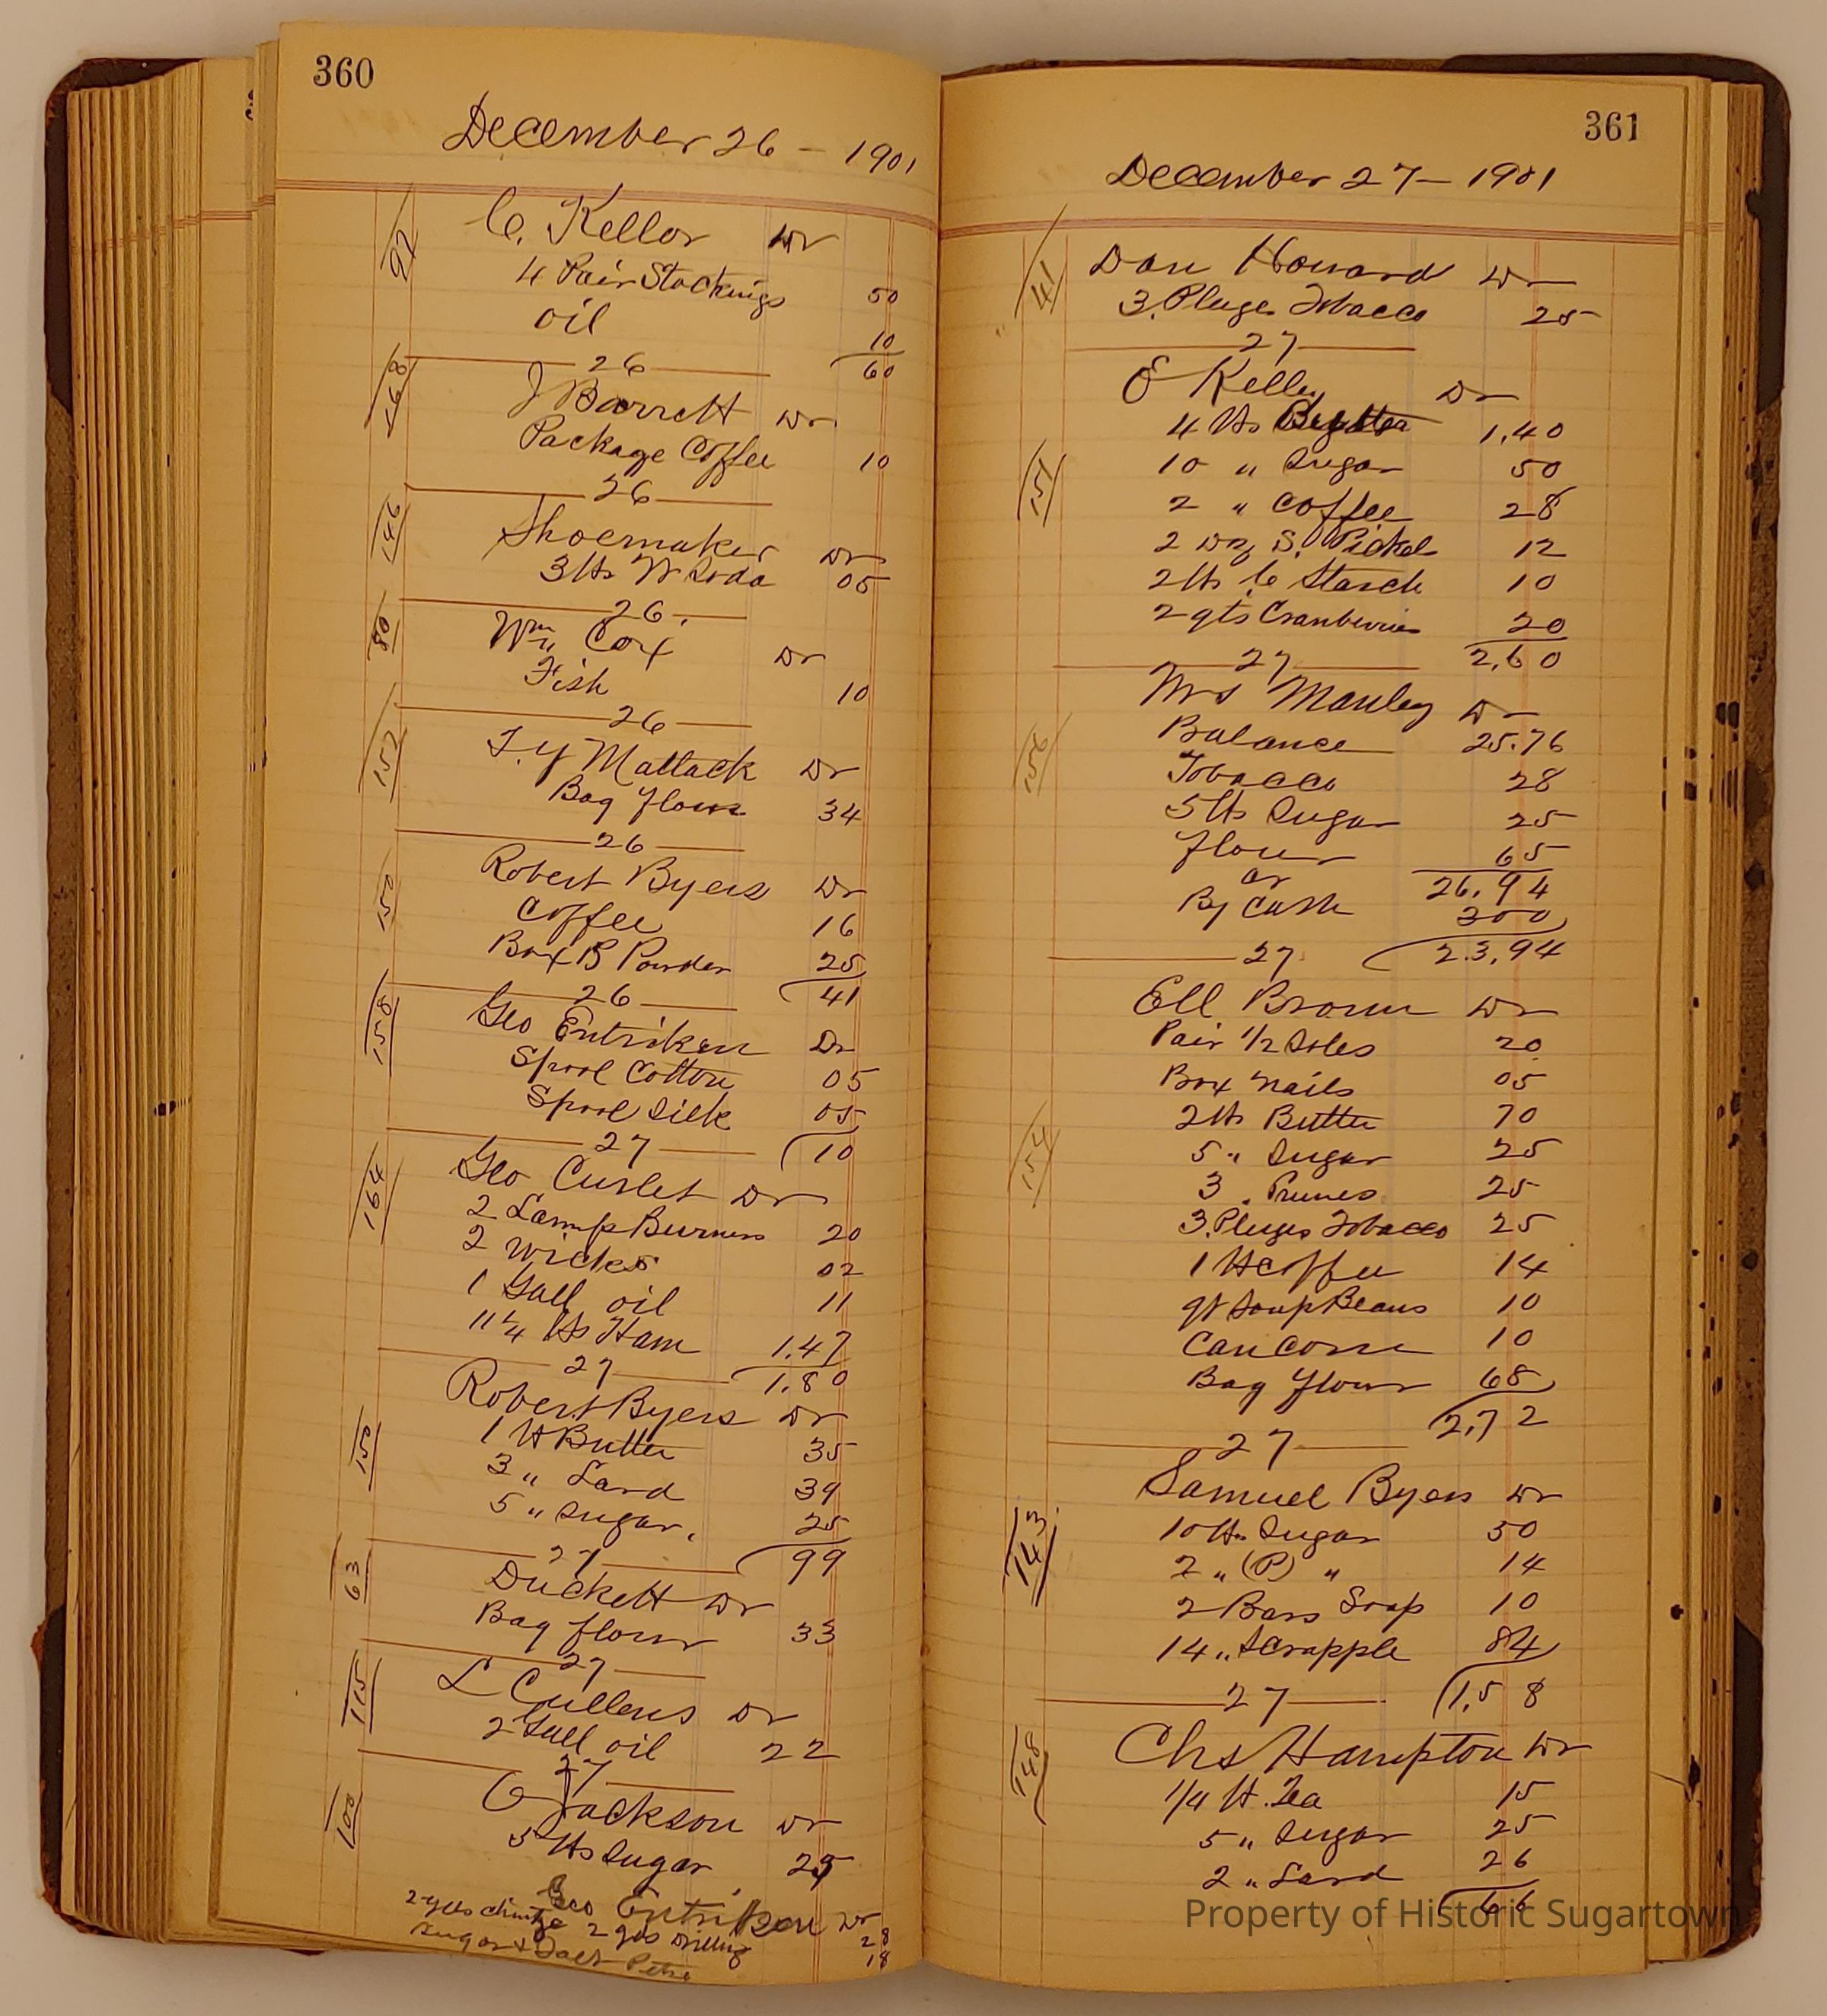 360
December 26 - 1901
97
C. Kellor Dr
4 Pair Stockings 50
oil 10
60
26
168
J Barrett Dr
Package Coffee 10
26
146
Shoemaker Dr
3 lbs W Soda 05
26.
80
Wm Cox Dr
Fish 10
26
157
T. Y Mattack Dr
Bag flour 34
26
150
Robert Byers Dr
Coffee 16
Box B Powder 25
41
26
158
Geo Entriken Dr
Spool Cotton 05
Spool Silk 05
10
27
164
Geo Curlet Dr
2 Lamp Burners 20
2 Wicks 02
1 Gall oil 11
11 1/4 lbs Ham 1.47
1.80
27
150
Robert Byers Dr
1 lb Butter 35
3 " Lard 39
5 " Sugar. 25
99
27
63
Duckett Dr
Bag flour 33
27
115
L Cullens Dr
2 Gall oil 22
27
100
Jackson Dr
5 lbs Sugar 25
Geo Entriken Dr
2 yds 2 yds Drilling 28
Sugar & Salt Petre 18
361
December 27 - 1901
41
Dan Howard Dr
3. Pluge Tobacco 25
27
151
E Kelley Dr
4 lbs 1,40
10 " Sugar 50
2 " Coffee 28
2 Dz S. Pickel 12
2 lb C Starch 10
2 qts Cranberries 20
2,60
27
156
Mrs Manley Dr
Balance 25.76
Tobacco 28
5 lbs Sugar 25
flour 65
26.94
Cr
By Cash 300
23,94
27
154
Ell Brown Dr
Pair 1/2 Soles 20
Box Nails 05
2 lb Butter 70
5 " Sugar 25
3 " Prunes 25
3. Pluges Tobacco 25
1 lb Coffee 14
qt Soup Beans 10
Can Corn 10
Bag flour 68
2,72
27
143
Samuel Byers Dr
10 lb Sugar 50
2 " (P) " 14
2 Bars Soap 10
14 " Scrapple 84
1,58
27
148
Chs Hampton Dr
1/4 lb. Tea 15
5 " Sugar 25
2 " Lard 26
66
Property of Historic Sugartown